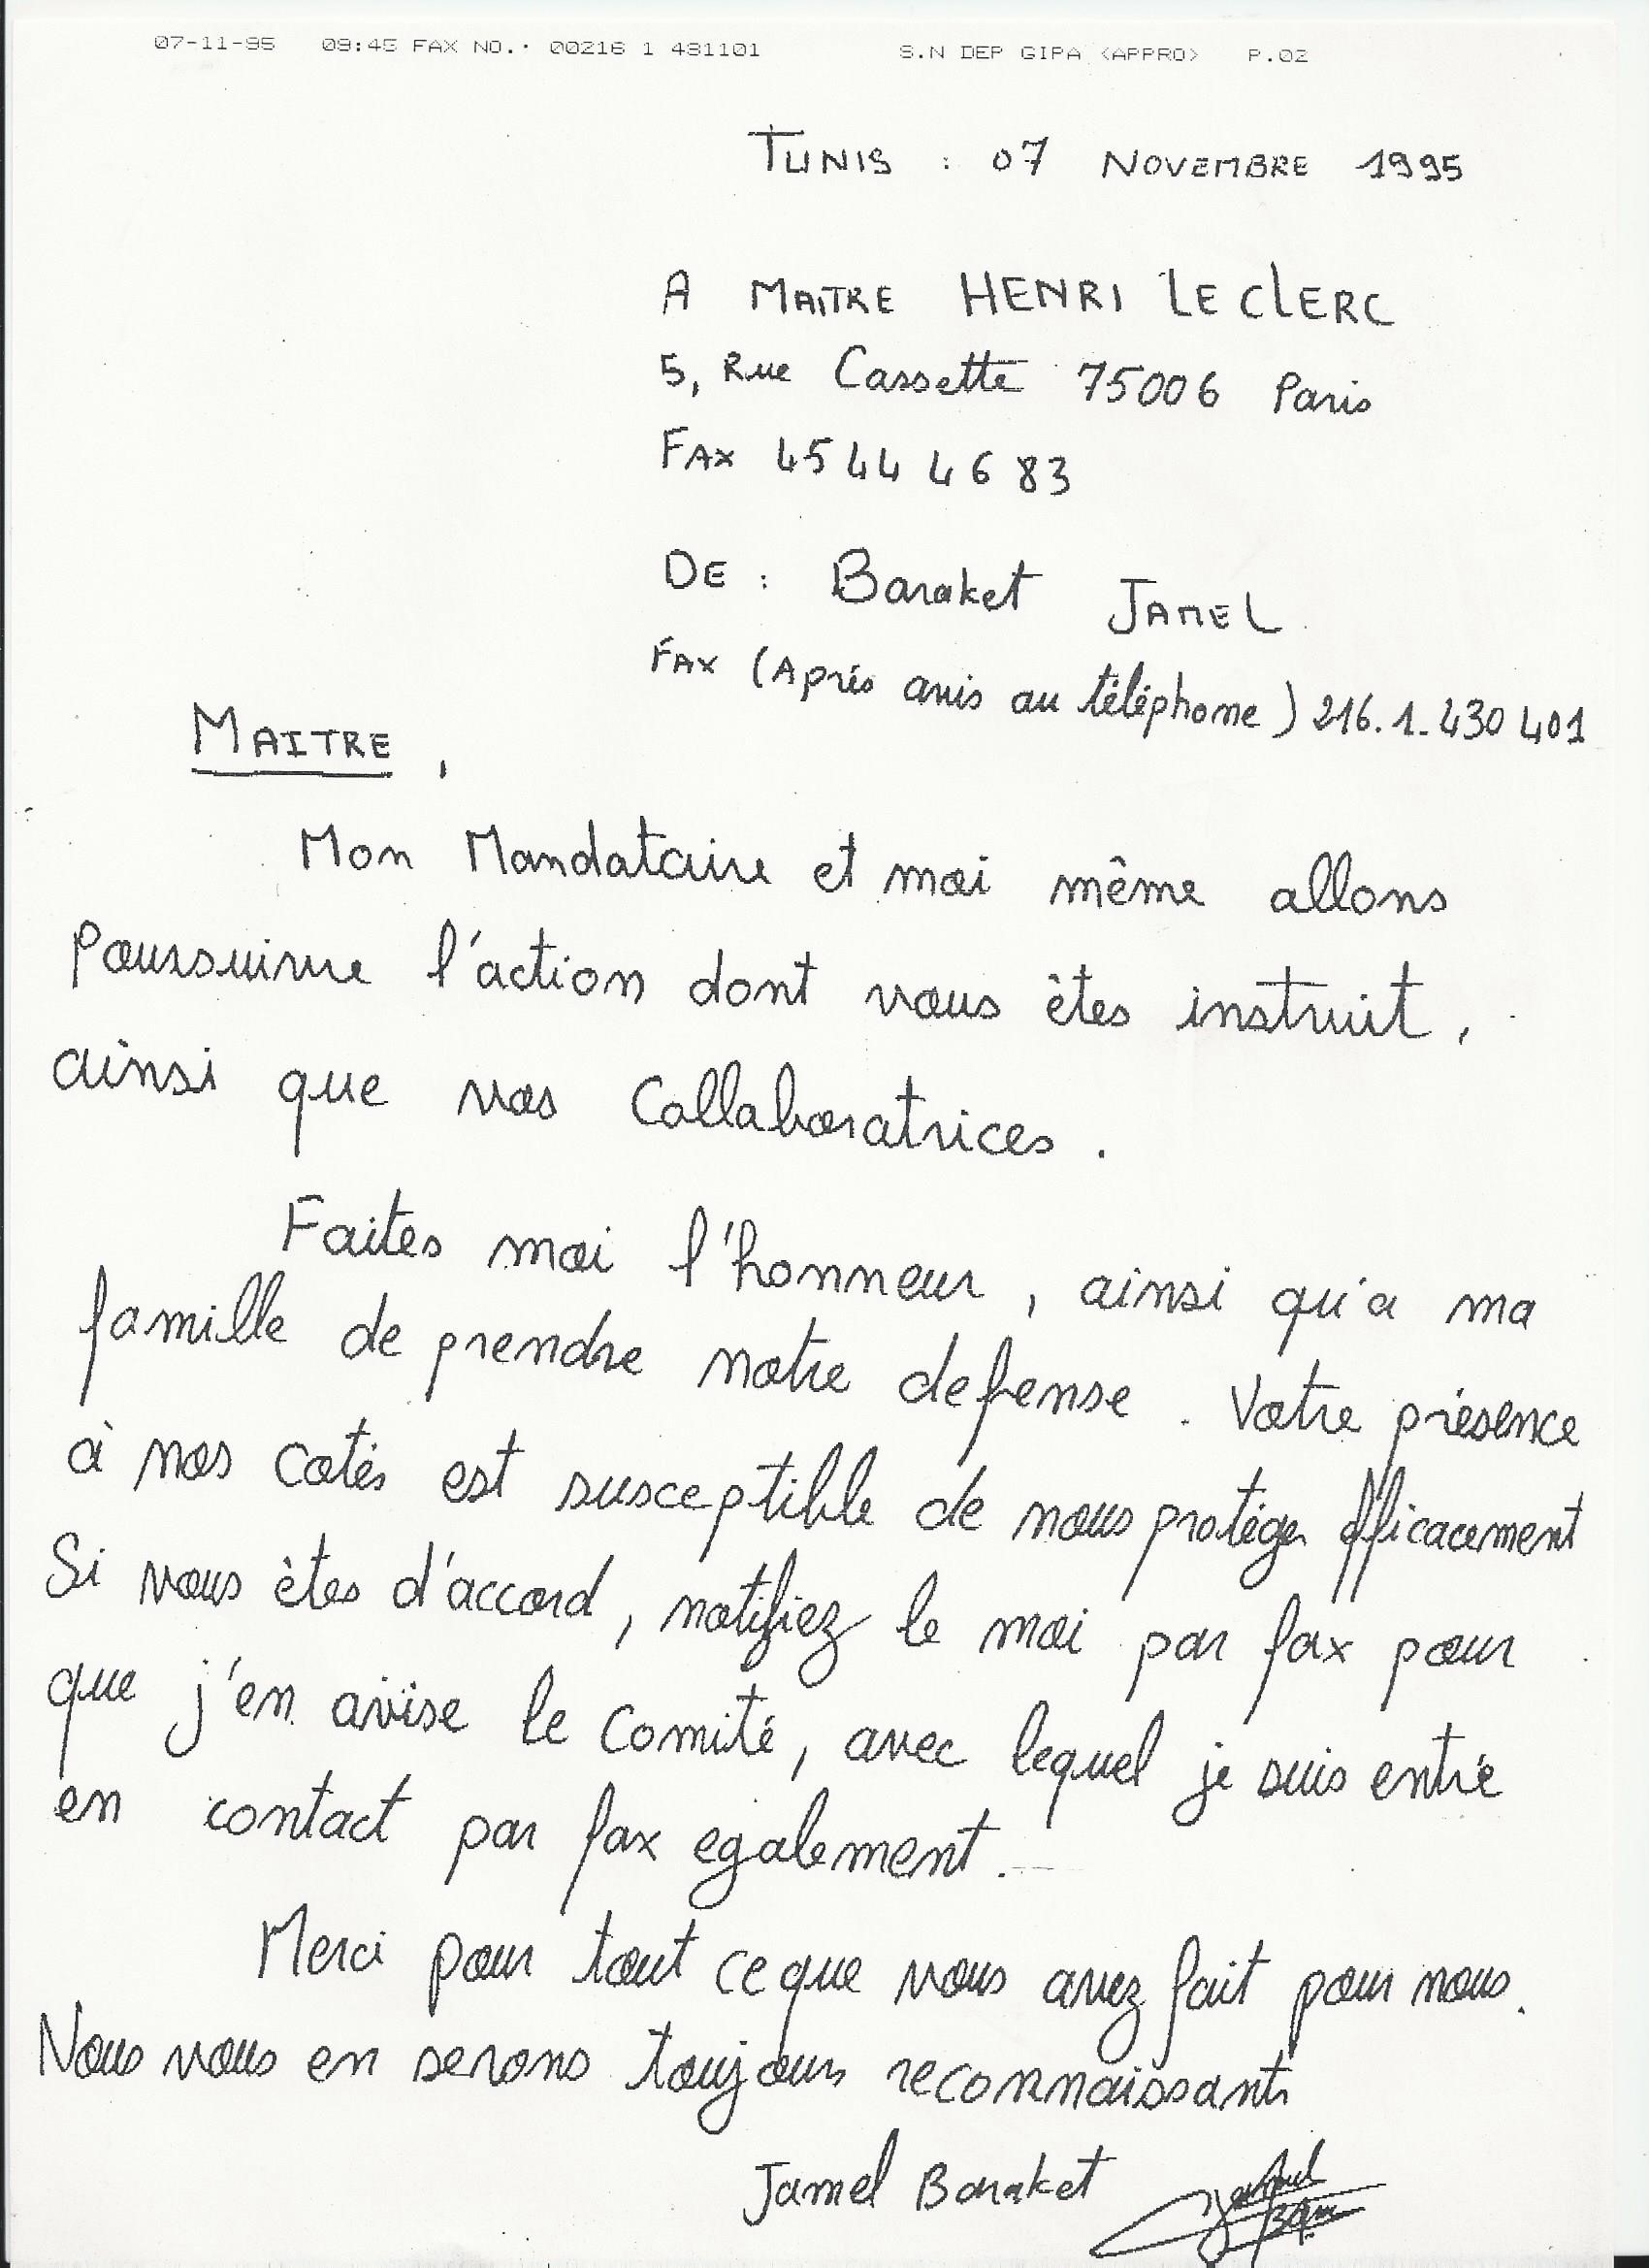 07-11-95 09:45 FAX NO.· 00216 1 431101 S.N DEP GIPA <APPRO> P.02
TUNIS : 07 NOVEMBRE 1995
A MAITRE HENRI LECLERC
5, Rue Cassette 75006 Paris
FAX 45 44 46 83
DE : Baraket JAMEL
FAX (Après avis au téléphone) 216.1.430 401
MAITRE,
Mon Mandataire et moi même allons
Poursuivre l'action dont vous êtes instruit,
ainsi que vos Collaboratrices.
Faites moi l'honneur, ainsi qu'a ma
famille de prendre notre defense. Votre présence
à nos cotés est susceptible de nous protéger efficacement
Si vous êtes d'accord, notifiez le moi par fax pour
que j'en avise le Comité, avec lequel je suis entré
en contact par fax egalement.
Merci pour tout ce que vous avez fait pour nous.
Nous vous en serons toujours reconnaissants
Jamel Baraket